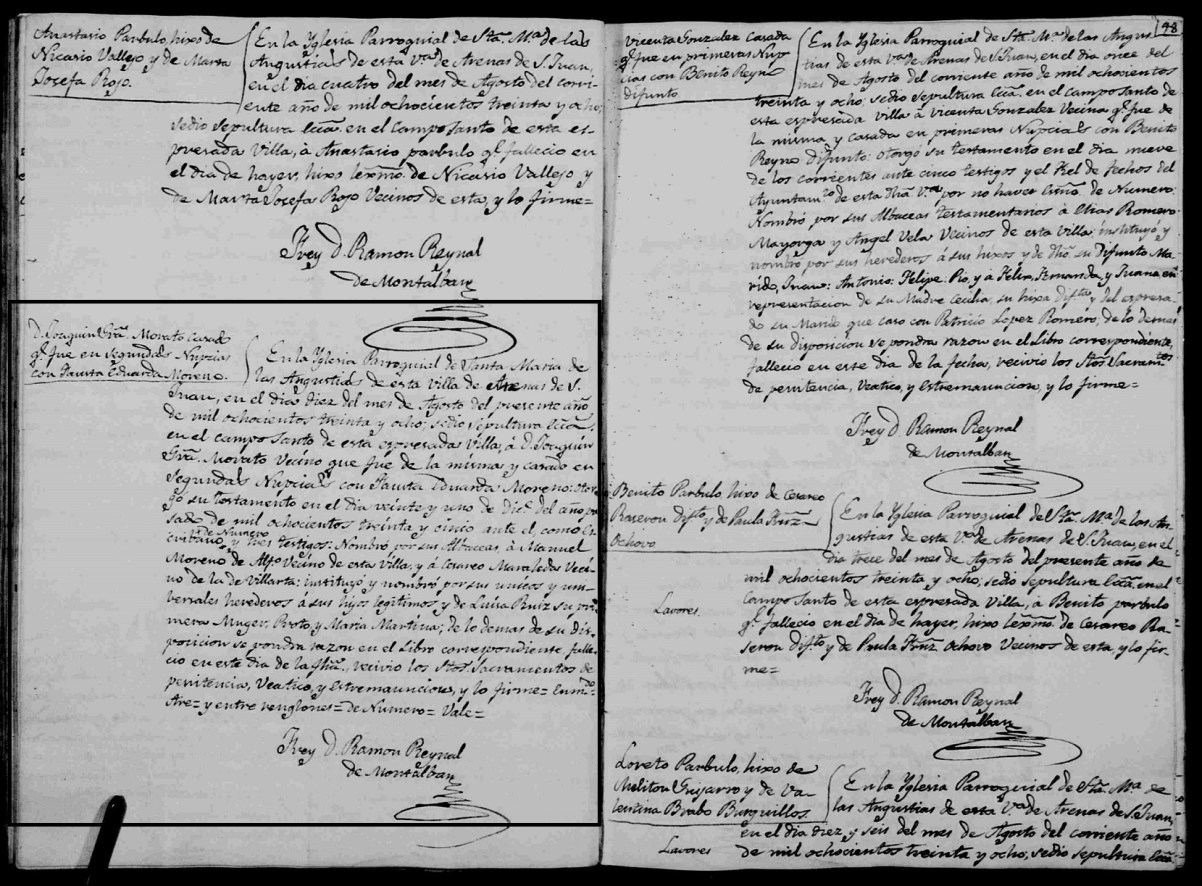 Anastasio Parbulo, hixo de
Nicasio Vallejo y de Maria
Josefa Rojo.
En la Yglesia Parroquial de Sta. Ma. de las
Angustias de esta Va. de Arenas de S. Juan,
en el dia cuatro del mes de Agosto del corri-
ente año de mil ochocientos treinta y ocho,
sedio sepultura Ecca. en el Campo Santo de esta es-
presada Villa, à Anastasio parbulo qe. fallecio en
el dia de hayer, hixo lexmo. de Nicasio Vallejo y
de Maria Josefa Rojo Vecinos de esta, y lo firme=
Frey D. Ramon Reynal
de Montalban
D. Joaquin Gra. Morato casado
qe. fue en segundas Nupcias
con Fausta Eduarda Moreno.
En la Yglesia Parroquial de Santa Maria de
las Angustias de esta Villa de Arenas de S.
Juan, en el dia diez del mes de Agosto del presente año
de mil ochocientos treinta y ocho, sedio sepultura Ecca.
en el campo Santo de esta espresada Villa, à D. Joaquin
Gra. Morato Vecino que fue de la misma y casado en
segundas Nupcias con Fausta Eduarda Moreno: Otor-
gó su testamento en el dia veinte y uno de Dice. del año pa-
sado de mil ochocientos treinta y cinco ante el, como Es-
cribano de Numero y tres testigos: Nombró por sus Albaceas, à Manuel
Moreno de Alfo. Vecino de esta Villa, y à Cesareo Marsledas Veci-
no de la de Villarta: instituyó y nombró por sus unicos y uni-
versales herederos á sus hijos legitimos, y de Luisa Ruiz su pri-
mera Muger, Proto, y Maria Martina; de lo demas de su dis-
posicion se pondra razon en el Libro correspondiente, falle-
cio en este dia de la fha., recivio los Stos. Sacramentos de
penitencia, Veatico, y Estremauncion, y lo firme= Enmdo.
Are= y entre renglones= de Numero= Vale=
Frey D. Ramon Reynal
de Montalban
48
Vicenta Gonzalez Casada
qe. fue en primeras Nup-
cias con Benito Reyno
difunto.
En la Yglesia Parroquial de Sta. Ma. de las Angus-
tias de esta Va. de Arenas de S. Juan, en el dia once del
mes de Agosto del corriente año de mil ochocientos
treinta y ocho, sedio sepultura Ecca. en el campo Santo de
esta espresada Villa à Vicenta Gonzalez Vecina qe. fue de
la misma y casada en primeras Nupcias con Benito
Reyno difunto: otorgó su testamento en el dia nueve
de los corrientes ante cinco testigos y el Fiel de fechos del
Ayuntamto. de esta dha. Va. por no haver Esno. de Numero:
Nombró por sus Albaceas testamentarios à Elias Romero
Mayorga y Angel Vela Vecinos de esta Villa: instituyó y
nombró por sus herederos à sus hixos y de dho. su Difunto Ma-
rido, Juan: Antonio: Felipe: Pio, y à Felix, Fernanda, y Juana en
representacion de su Madre Cecilia, su hixa difta. y del espresa-
do su Marido que caso con Patricio Lopez Romero, de lo demas
de su disposicion se pondra razon en el Libro correspondiente,
fallecio en este dia de la fecha, recivio los Stos. Sacramtos.
de penitencia, Veatico, y Estremauncion, y lo firme=
Frey D. Ramon Reynal
de Montalban
Benito Parbulo, hixo de Cesareo
Raseron difto. y de Paula Frnz.
Ochovo
Lavores
En la Yglesia Parroquial de Sta. Ma. de las An-
gustias de esta Va. de Arenas de S. Juan, en el
dia trece del mes de Agosto del presente año de
mil ochocientos treinta y ocho, sedio sepultura Ecca. en el
Campo santo de esta espresada Villa, à Benito parbulo
qe. fallecio en el dia de hayer, hixo lexmo. de Cesareo Ra-
seron difto. y de Paula Frnz. Ochovo Vecinos de esta, y lo fir-
me=
Frey D. Ramon Reynal
de Montalban
Loreto Parbulo, hixo de
Meliton Guijarro y de Va-
lentina Brabo Burguillos.
Lavores
En la Yglesia Parroquial de Sta. Ma. de
las Angustias de esta Va. de Arenas de S. Juan,
en el dia diez y seis del mes de Agosto del corriente año
de mil ochocientos treinta y ocho, sedio sepultura Ecca.